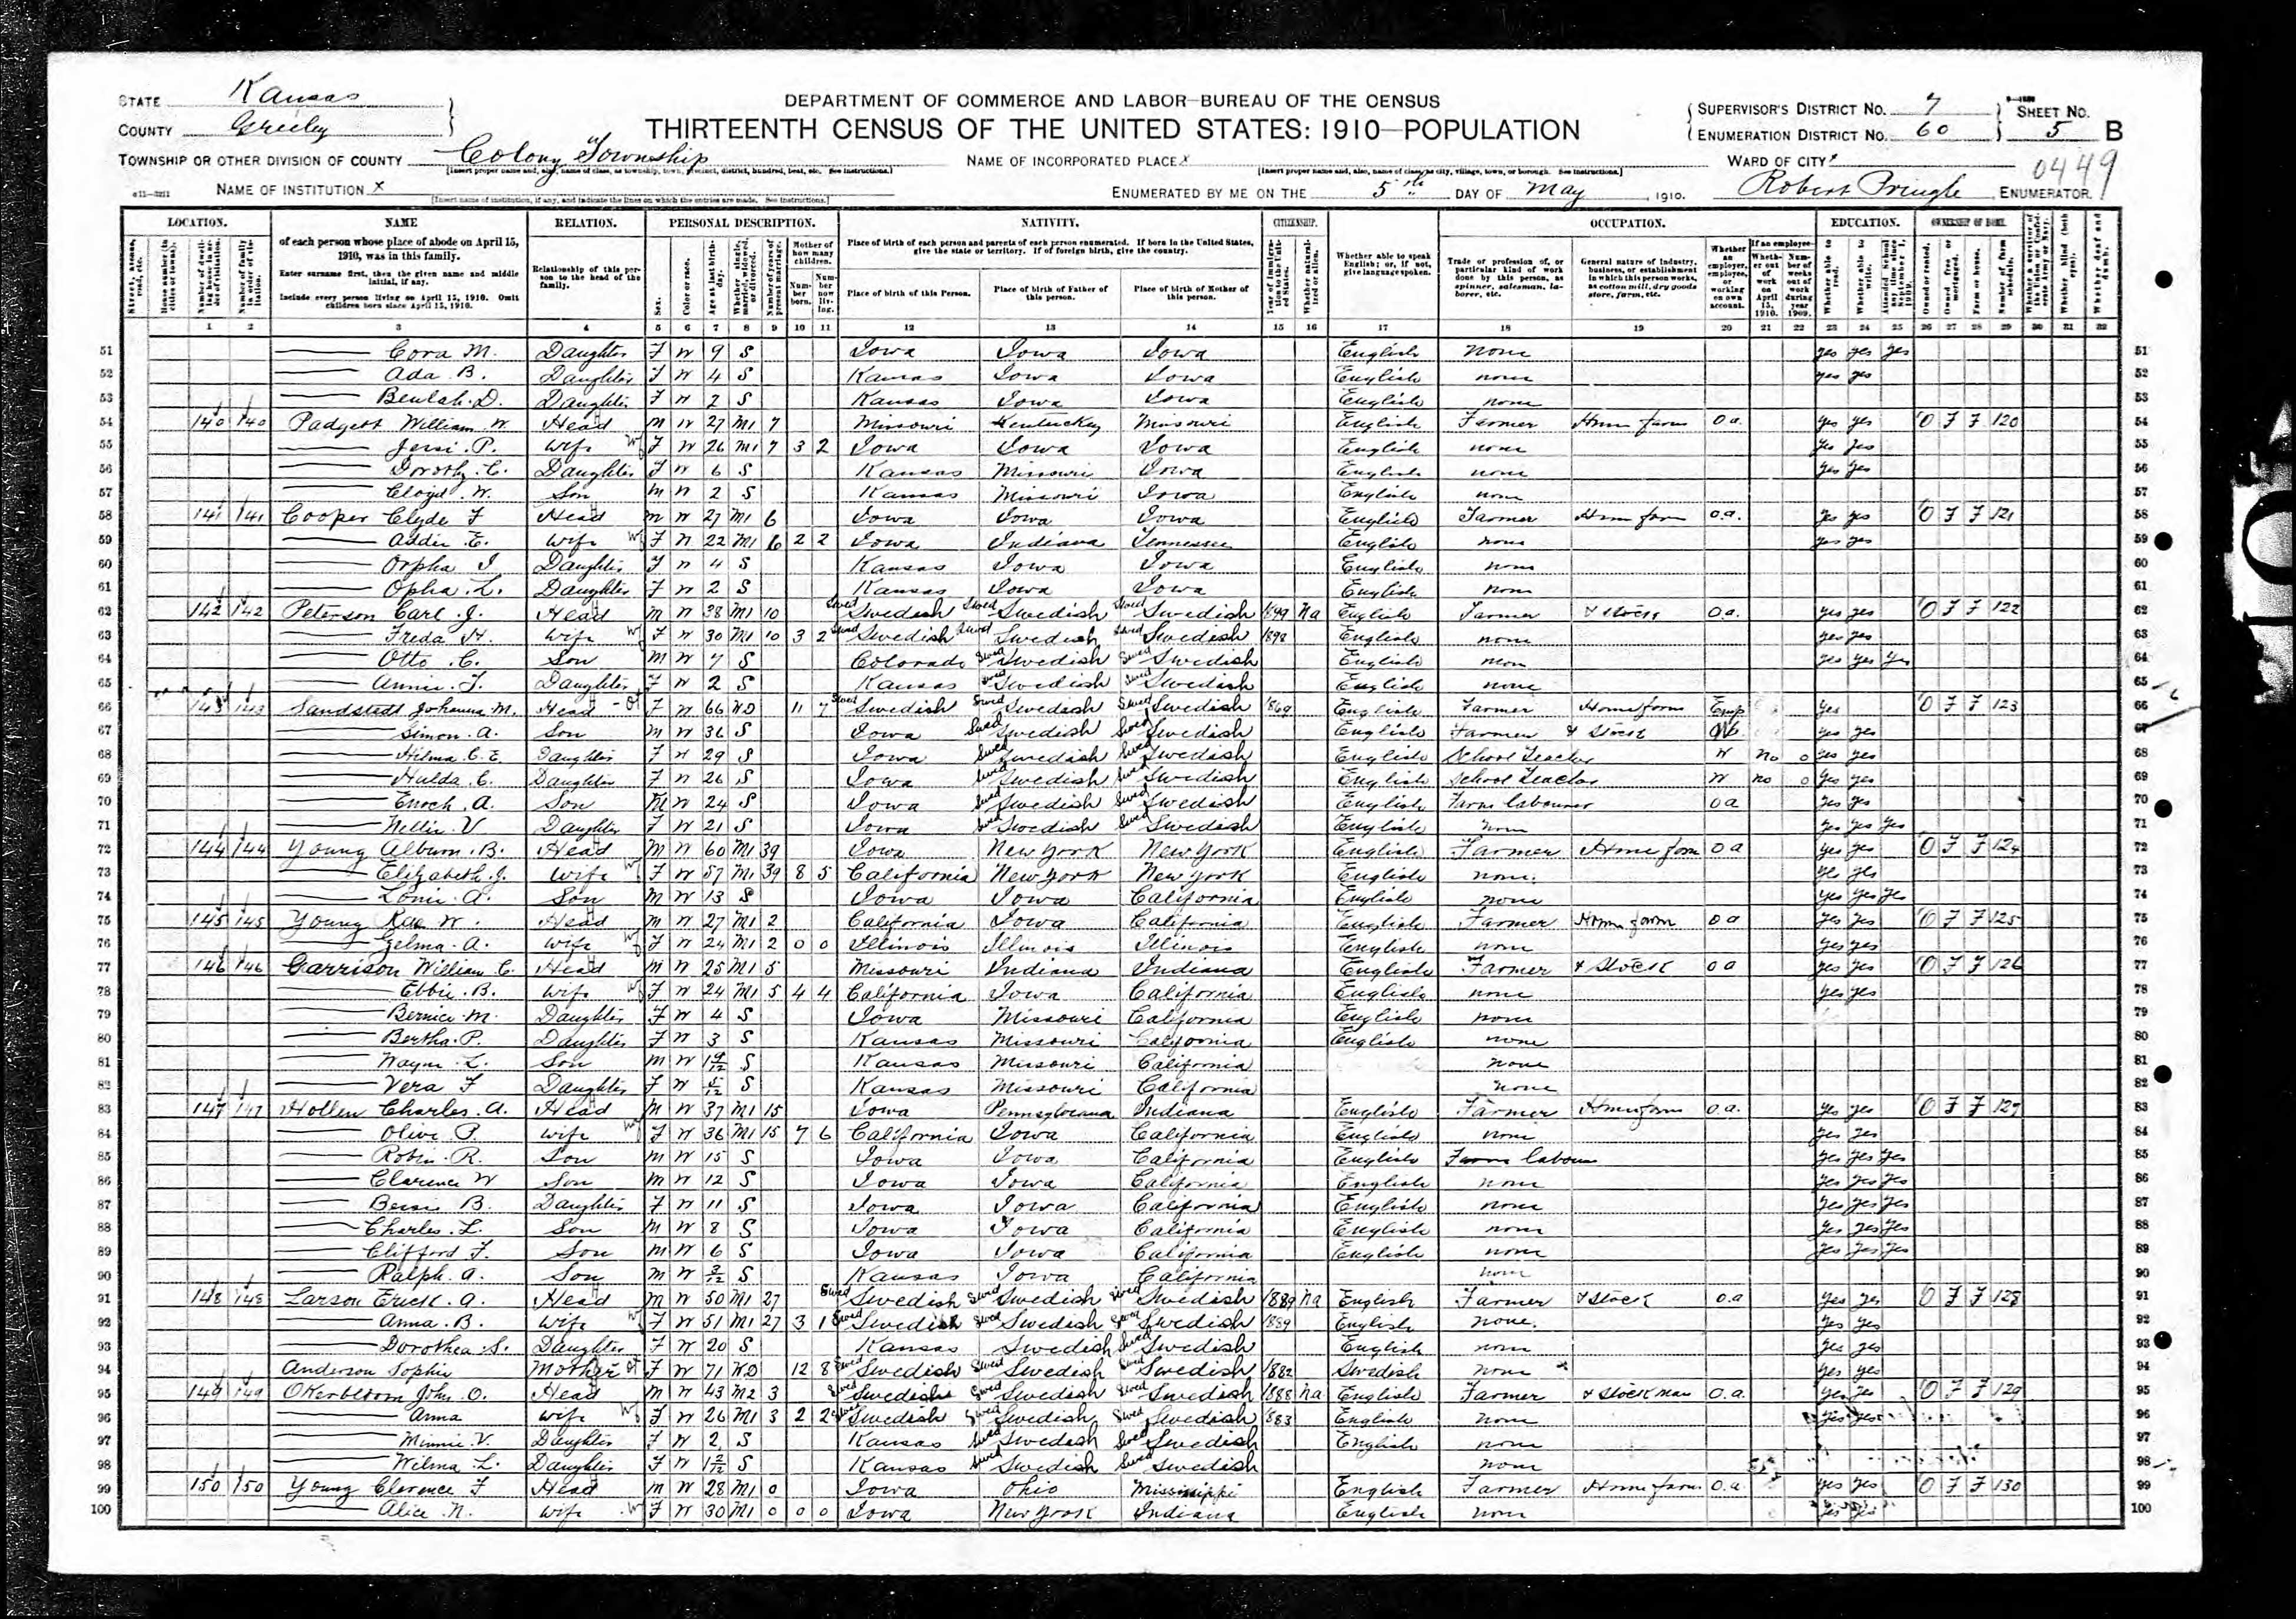 STATE Kansas
COUNTY Greeley
DEPARTMENT OF COMMERCE AND LABOR—BUREAU OF THE CENSUS
THIRTEENTH CENSUS OF THE UNITED STATES: 1910—POPULATION
SUPERVISOR'S DISTRICT No. 7
ENUMERATION DISTRICT No. 60
SHEET No. 5 B
0449
TOWNSHIP OR OTHER DIVISION OF COUNTY Colony Township
NAME OF INCORPORATED PLACE x
WARD OF CITY x
NAME OF INSTITUTION x
ENUMERATED BY ME ON THE 5th DAY OF May, 1910. Robert Pringle, ENUMERATOR.
LOCATION. NAME RELATION. PERSONAL DESCRIPTION. NATIVITY. CITIZENSHIP. OCCUPATION. EDUCATION. OWNERSHIP OF HOME.
of each person whose place of abode on April 15, 1910, was in this family.
Enter surname first, then the given name and middle initial, if any.
Include every person living on April 15, 1910. Omit children born since April 15, 1910.
Relationship of this person to the head of the family.
Place of birth of each person and parents of each person enumerated. If born in the United States, give the state or territory. If of foreign birth, give the country.
Place of birth of this Person. Place of birth of Father of this person. Place of birth of Mother of this person.
Whether able to speak English; or, if not, give language spoken.
Trade or profession of, or particular kind of work done by this person, as spinner, salesman, laborer, etc.
General nature of industry, business, or establishment in which this person works, as cotton mill, dry goods store, farm, etc.
1 2 3 4 5 6 7 8 9 10 11 12 13 14 15 16 17 18 19 20 21 22 23 24 25 26 27 28 29 30 31 32
51 Cora M. Daughter F W 9 S Iowa Iowa Iowa English none yes yes yes 51
52 Ada B. Daughter F W 4 S Kansas Iowa Iowa English none yes yes 52
53 Beulah D. Daughter F W 2 S Kansas Iowa Iowa English none 53
54 140 140 Padgett William W. Head M W 27 M1 7 Missouri Kentuckey Missouri English Farmer Home farm O a yes yes O F F 120 54
55 Jessi P. wife F W 26 M1 7 3 2 Iowa Iowa Iowa English none yes yes 55
56 Dorothy C. Daughter F W 6 S Kansas Missouri Iowa English none yes yes 56
57 Cloyd W. Son M W 2 S Kansas Missouri Iowa English none 57
58 141 141 Cooper Clyde F Head M W 27 M1 6 Iowa Iowa Iowa English Farmer Home farm O.a. yes yes O F F 121 58
59 Addie E. wife F W 22 M1 6 2 2 Iowa Indiana Tennessee English none yes yes 59
60 Orpha I Daughter F W 4 S Kansas Iowa Iowa English none 60
61 Opha L. Daughter F W 2 S Kansas Iowa Iowa English none 61
62 142 142 Peterson Carl J. Head M W 38 M1 10 Swedish Swedish Swedish 1899 Na English Farmer & stock O a. yes yes O F F 122 62
63 Freda H. wife F W 30 M1 10 3 2 Swedish Swedish Swedish 1898 English none yes yes 63
64 Otto C. Son M W 7 S Colorado Swedish Swedish English none yes yes yes 64
65 Annie F. Daughter F W 2 S Kansas Swedish Swedish English none 65
66 143 143 Sandstedt Johanna M. Head F W 66 WD 11 7 Swedish Swedish Swedish 1869 English Farmer Home farm Emp yes O F F 123 66
67 Simon A. Son M W 36 S Iowa Swedish Swedish English Farmer & Stock yes yes 67
68 Hilma C. E. Daughter F W 29 S Iowa Swedish Swedish English School Teacher W No 0 yes yes 68
69 Hulda C. Daughter F W 26 S Iowa Swedish Swedish English School Teacher W no 0 yes yes 69
70 Enoch A. Son M W 24 S Iowa Swedish Swedish English Farm labourer O a yes yes 70
71 Nellie V Daughter F W 21 S Iowa Swedish Swedish English none yes yes yes 71
72 144 144 Young Album B. Head M W 60 M1 39 Iowa New York New York English Farmer Home farm O a yes yes O F F 124 72
73 Elizabeth J. wife F W 57 M1 39 8 5 California New York New York English none. yes yes 73
74 Lonie A. Son M W 13 S Iowa Iowa California English none yes yes yes 74
75 145 145 Young Rae W. Head M W 27 M1 2 California Iowa California English Farmer Home farm O a yes yes O F F 125 75
76 Gelma A. wife F W 24 M1 2 0 0 Illinois Illinois Illinois English none yes yes 76
77 146 146 Garrison William C. Head M W 25 M1 5 Missouri Indiana Indiana English Farmer & Stock O a yes yes O F F 126 77
78 Ebbie B. wife F W 24 M1 5 4 4 California Iowa California English none yes yes 78
79 Bernice M. Daughter F W 4 S Iowa Missouri California English none 79
80 Bertha P. Daughter F W 3 S Kansas Missouri California English none 80
81 Wayne L. Son M W S Kansas Missouri California none 81
82 Vera F Daughter F W S Kansas Missouri California none 82
83 147 147 Hollen Charles A. Head M W 37 M1 15 Iowa Pennsylvania Indiana English Farmer Home farm O.a. yes yes O F F 127 83
84 Olive P. wife F W 36 M1 15 7 6 California Iowa California English none yes yes 84
85 Robin R. Son M W 15 S Iowa Iowa California English Farm labour yes yes yes 85
86 Clarence W Son M W 12 S Iowa Iowa California English none yes yes yes 86
87 Bessie B. Daughter F W 11 S Iowa Iowa California English none yes yes yes 87
88 Charles L. Son M W 8 S Iowa Iowa California English none yes yes yes 88
89 Clifford F. Son M W 6 S Iowa Iowa California English none yes yes yes 89
90 Ralph A. Son M W 3/12 S Kansas Iowa California none 90
91 148 148 Larson Erick A. Head M W 50 M1 27 Swedish Swedish Swedish 1889 Na English Farmer & Stock O.a yes yes O F F 128 91
92 Anna B. wife F W 51 M1 27 3 1 Swedish Swedish Swedish 1889 English none. yes yes 92
93 Dorothea S. Daughter F W 20 S Kansas Swedish Swedish English none yes yes 93
94 Anderson Sophie Mother F W 71 WD 12 8 Swedish Swedish Swedish 1882 Swedish none yes yes 94
95 149 149 Okerbloom John O. Head M W 43 M2 3 Swedish Swedish Swedish 1888 Na English Farmer & Stock man O.a. yes yes O F F 129 95
96 Anna wife F W 26 M1 3 2 2 Swedish Swedish Swedish 1883 English none yes yes 96
97 Minnie V. Daughter F W 2 S Kansas Swedish Swedish English none 97
98 Wilma L. Daughter F W 1 2/12 S Kansas Swedish Swedish none 98
99 150 150 Young Clarence F Head M W 28 M1 0 Iowa Ohio Mississippi English Farmer Home farm O.a. yes yes O F F 130 99
100 Alice N. wife F W 30 M1 0 0 0 Iowa New York Indiana English none yes yes 100